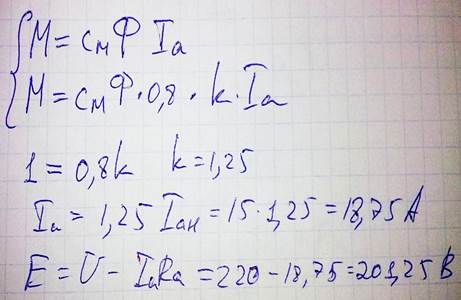 M = cмФ Iа
M = cмФ·0,8 · k·Iа
1 = 0,8k k = 1,25
Iа = 1,25 Iан = 15·1,25 = 18,75 A
E = U - IаRа = 220 - 18,75 = 201,25 В